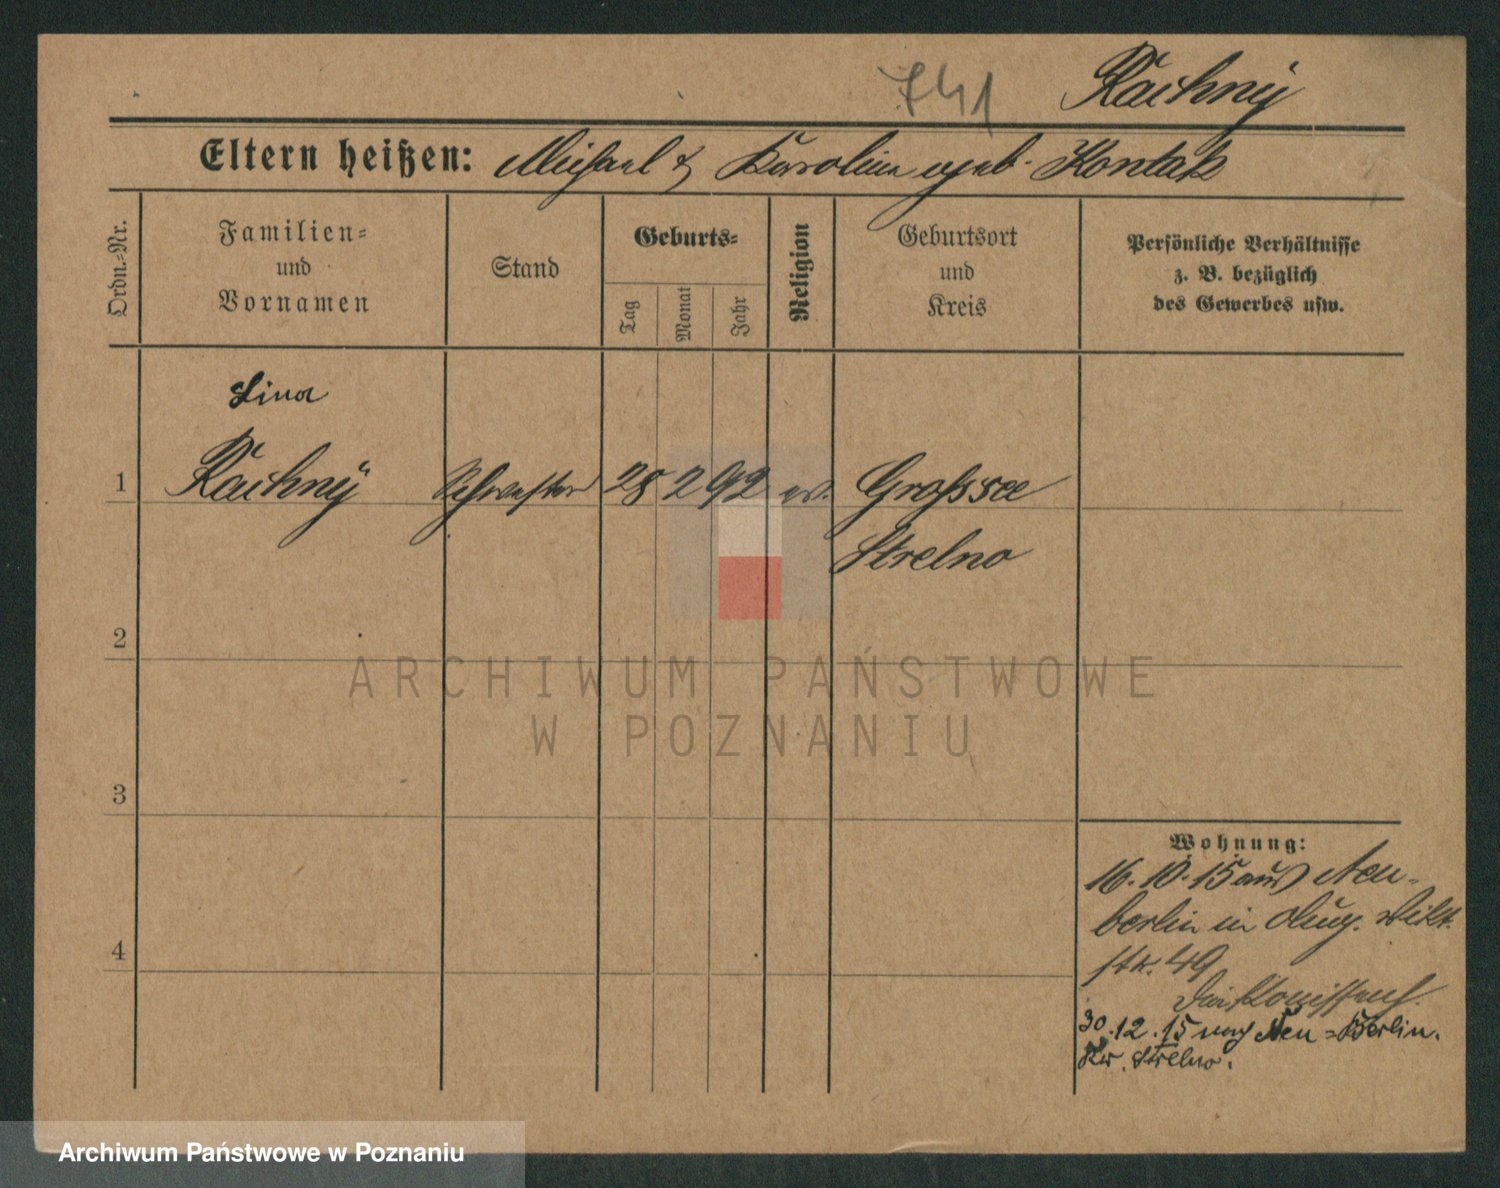 741 Rachny
Eltern heißen: Michael & Karoline geb. Kontak
Ordn.-Nr.
Familien-
und
Vornamen
Stand
Geburts-
Tag
Monat
Jahr
Religion
Geburtsort
und
Kreis
Persönliche Verhältnisse
z. B. bezüglich
des Gewerbes usw.
Lina
1 Rachny Schwester 28 2 92 ev. Grossee
Strelno
2
ARCHIWUM PAŃSTWOWE
W POZNANIU
3
4
Wohnung:
16.10.15 aus Neu-
berlin in Aug. Vikt.
str. 49
30.12.15 nach Neu-Berlin.
Kr. Strelno.
Archiwum Państwowe w Poznaniu